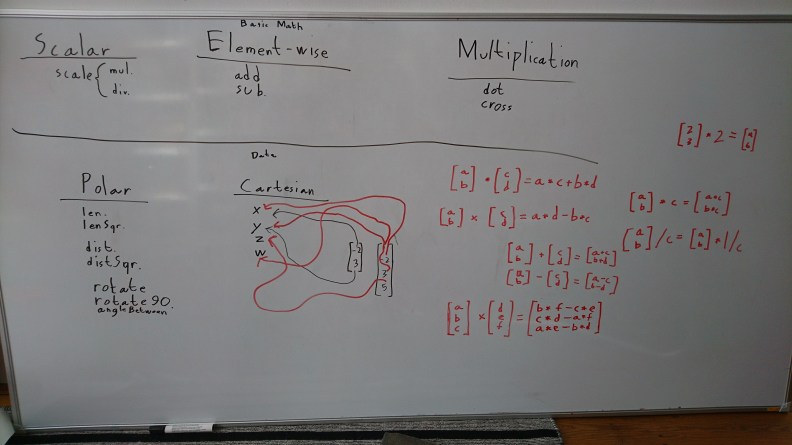 Basic Math
Scalar
scale { mul.
div.
Element-wise
add
sub.
Multiplication
dot
cross
Data
Polar
len.
lenSqr.
dist.
distSqr.
rotate
rotate 90.
angleBetween
Cartesian
x
y
z
w
[-2
3]
3
5
[a
b] • [c
d] = a*c+b*d
[a
b] × [c
d] = a*d-b*c
[a
b] + [c
d] =
[a
b] - [c
d] = [a-c
b-d]
[a
b
c] × [d
e
f] = [b*f-c*e
c*d-a*f
a*e-b*d]
[2
3] * 2 =
[a
b] * c = [a*c
b*c]
[a
b] / c = [a
b] * 1/c